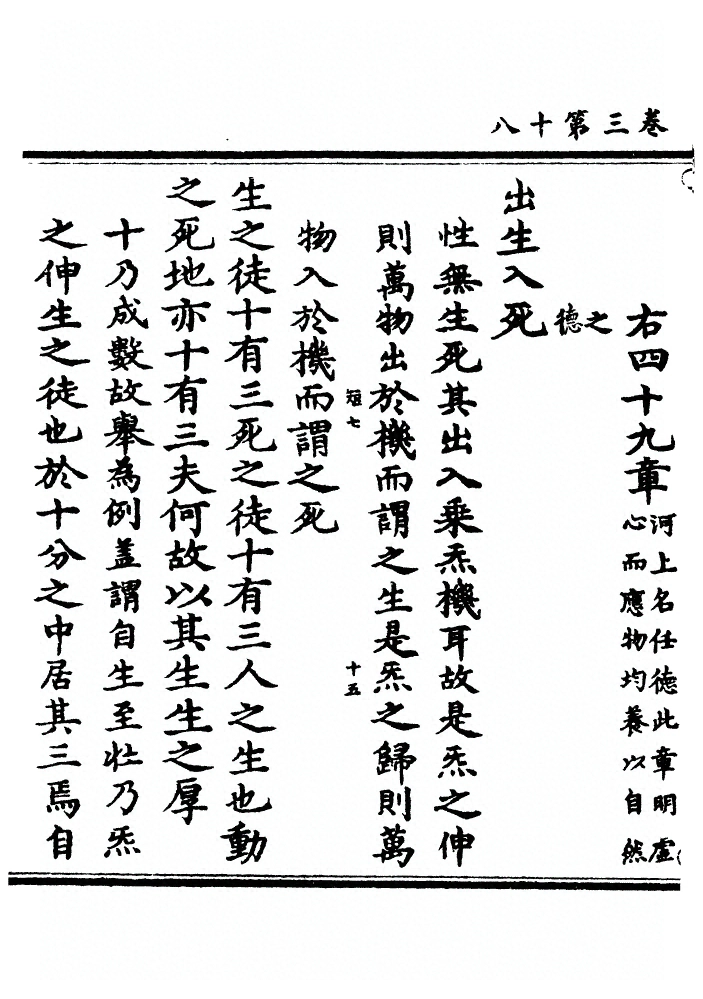 八十第三卷
右四十九章河上名任德此章明虛
心而應物均養以自然
之
德
出生入死
性無生死其出入乗炁機耳故是炁之伸
則萬物出於機而謂之生是炁之歸則萬
短七
十五
物入於機而謂之死
生之徒十有三死之徒十有三人之生也動
之死地亦十有三夫何故以其生生之厚
十乃成數故舉為例蓋謂自生至壯乃炁
之伸生之徒也於十分之中居其三焉自